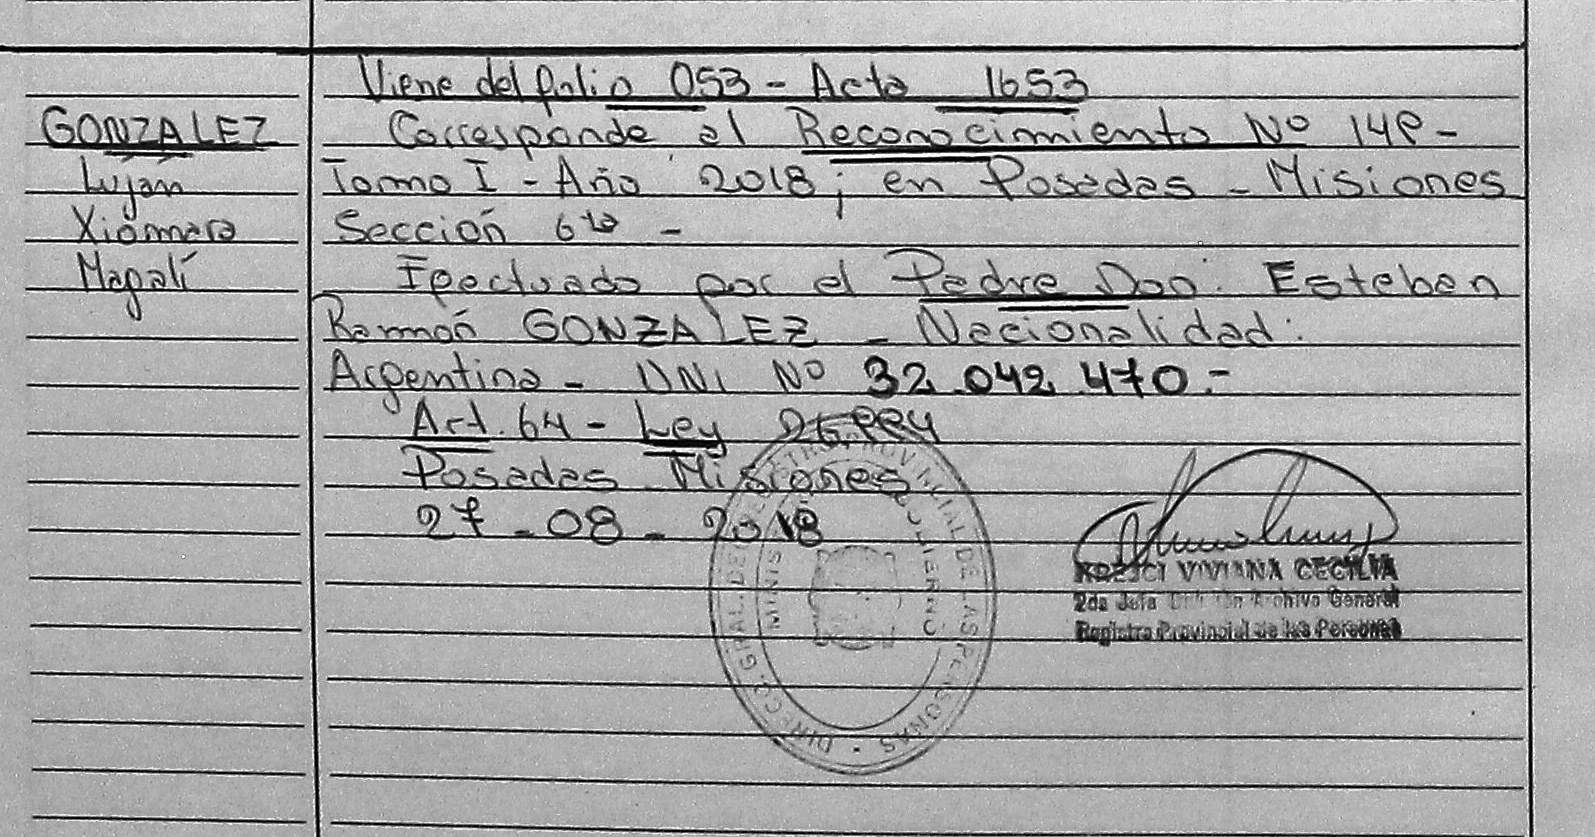 Viene del folio 053 - Acta 1653
GONZALEZ
Lujan
Xiomara
Magalí
Corresponde al Reconocimiento Nº 148 -
Tomo I - Año 2018; en Posadas - Misiones
Sección 6ta -
Efectuado por el Padre Don: Esteban
Ramón GONZALEZ - Nacionalidad:
Argentina - DNI Nº 32.042.470.-
Art. 64 - Ley 26.994
Posadas Misiones
27 - 08 - 2018
VIVIANA CECILIA
2da Jefa Archivo General
Registro Provincial de las Personas
PROVINCIAL DE LAS PERSONAS